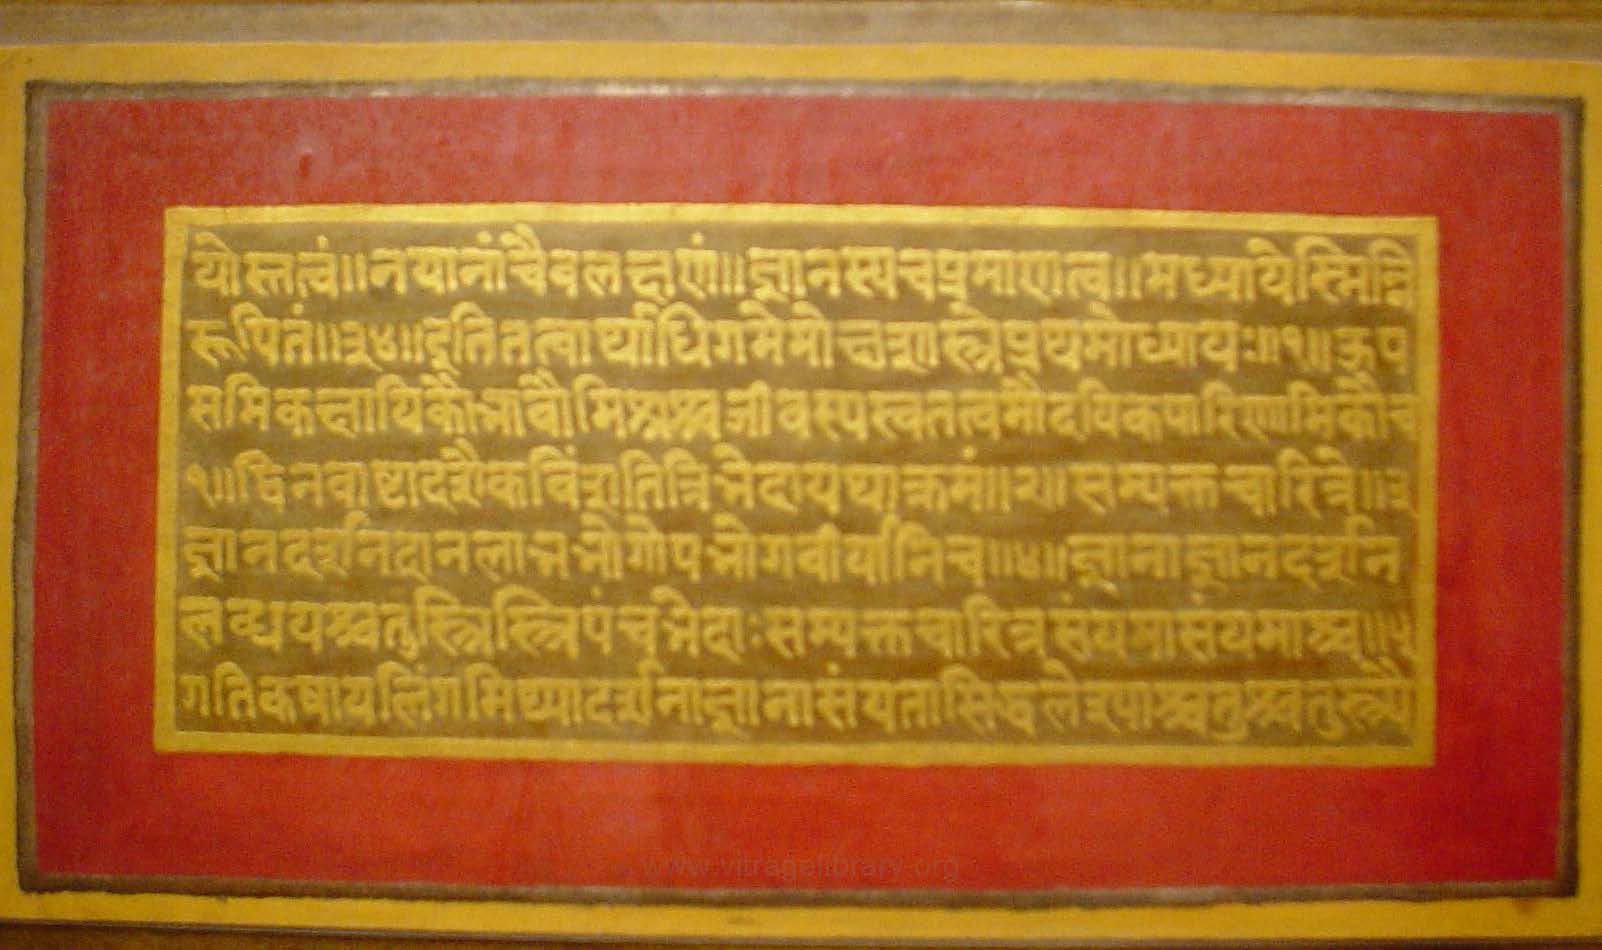 योस्तत्वं॥नयानांचैवलक्षणं॥ज्ञानस्यचप्रमाणत्व॥मध्यायेस्मिन्नि
रूपितं॥३४॥इतितत्वार्थाधिगमेमोक्षशास्त्रेप्रथमोध्यायः॥१॥ऊप
समिकक्षायिकौभावौमिश्रश्चजीवस्यस्वतत्वमौदयिकपारिणामिकौच
१॥द्विनवाष्टादशैकविंशतित्रिभेदायथाक्रमं॥२॥सम्यक्तचारित्रे॥३
ज्ञानदर्शनदानलाभभोगोपभोगवीर्यानिच॥४॥ज्ञानाज्ञानदर्शन
लब्धयश्चतुस्त्रित्रिपंचभेदाःसम्यक्तचारित्रसंयमासंयमाश्च॥५
गतिकषायलिंगमिथ्यादर्शनाज्ञानासंयतासिद्धलेश्याश्चतुश्चतुस्त्र्यै
www.vitragelibrary.org